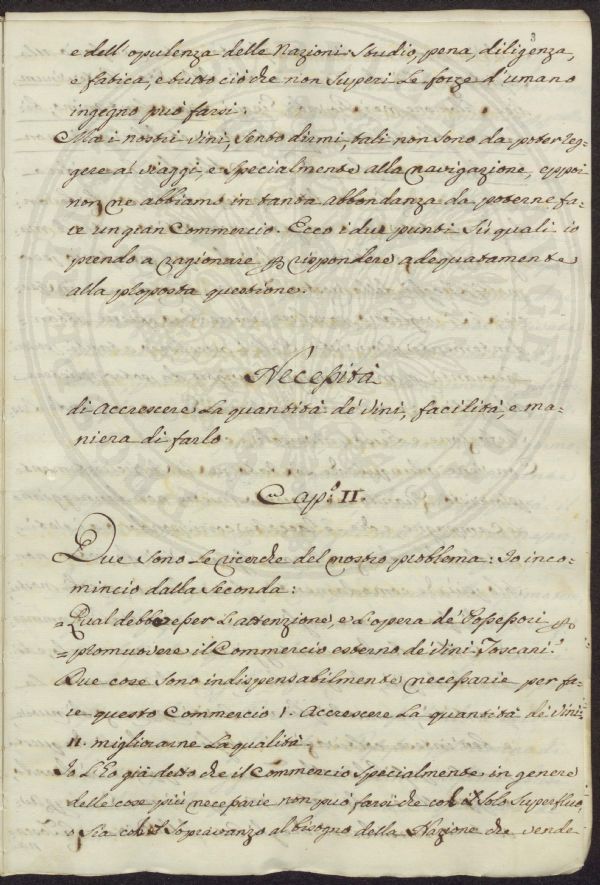 3
e dell'opulenza delle Nazioni. Studio, pena, diligenza,
e fatica, e tutto ciò che non superi le forze d'umano
ingegno può farsi.
Ma i nostri Vini, sento dirmi, tali non sono da poter reg=
gere a' viaggi, e specialmente alla navigazione, eppoi
non ne abbiamo in tanta abbondanza da poterne fa=
re un gran Commercio. Ecco i due punti su' quali io
prendo a ragionare p rispondere adequatamente
alla proposta questione.
Necessità
di accrescere la quantità de' Vini, facilità, e ma=
niera di farlo
Cap.º II.
Due sono le ricerche del nostro problema: Io inco=
mincio dalla seconda:
=Qual debba esser l'attenzione, e l'opera de' Possessori p
=promuovere il Commercio esterno de' Vini Toscani.=
Due cose sono indispensabilmente necessarie per fa=
re questo Commercio I. Accrescere la quantità de' Vini:
II. migliorarne la qualità,
Io l'ho già detto che il Commercio specialmente in genere
delle cose più necessarie non può farsi che col solo superfluo,
o sia col sopravanzo al bisogno della Nazione che vende